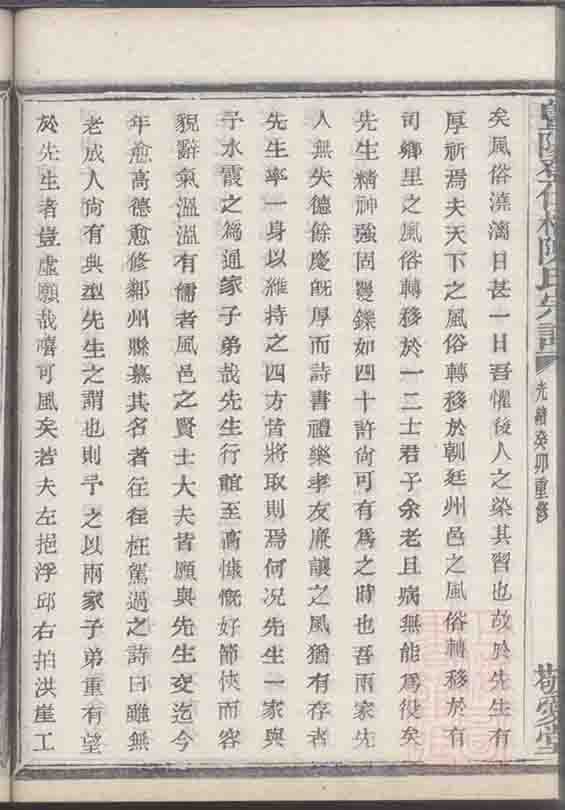 矣風俗澆漓日甚一日吾懼後人之染其習也故於先生有
厚祈焉夫天下之風俗轉移於朝廷州邑之風俗轉移於有
司鄉里之風俗轉移於一二士君子余老且病無能為役矣
先生精神強固矍鑠如四十許尚可有為之時也吾兩家先
人無失德餘慶旣厚而詩書禮樂孝友廉讓之風猶有存者
先生率一身以維持之四方皆將取則焉何況先生一家與
予水霞之為通家子弟哉先生行誼至高慷慨好節俠而容
貌辭氣溫溫有儒者風邑之賢士大夫皆願與先生交迄今
年愈高德愈修鄰州縣慕其名者往往枉駕過之詩曰雖無
老成人尙有典型先生之謂也則予之以兩家子弟重有望
於先生者豈虛願哉嘻可風矣若夫左挹浮邱右拍洪崖工
陳氏宗譜
光緒癸卯重修
敬愛堂